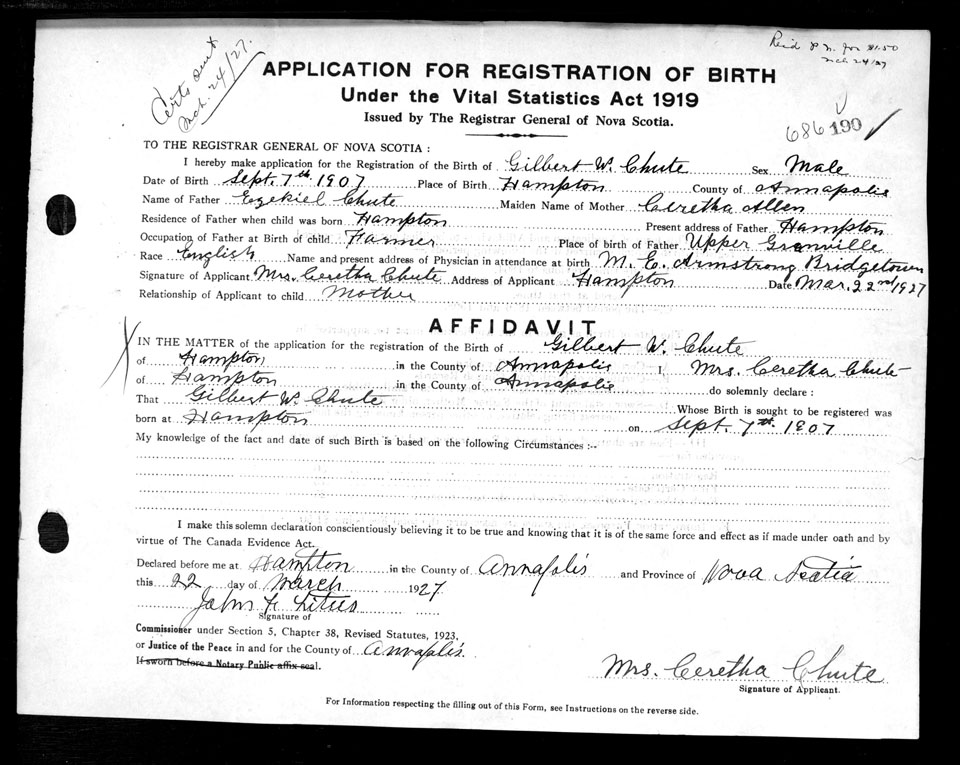 Certs sent
Mch. 24/27.
Rec'd P.N. for $1.50
Mch 24/27
APPLICATION FOR REGISTRATION OF BIRTH
Under the Vital Statistics Act 1919
Issued by The Registrar General of Nova Scotia.
686 190
TO THE REGISTRAR GENERAL OF NOVA SCOTIA :
I hereby make application for the Registration of the Birth of Gilbert W. Chute Sex Male
Date of Birth Sept. 7th 1907 Place of Birth Hampton County of Annapolis
Name of Father Ezekiel Chute Maiden Name of Mother Ceretha Allen
Residence of Father when child was born Hampton Present address of Father Hampton
Occupation of Father at Birth of child Farmer Place of birth of Father Upper Granville
Race English Name and present address of Physician in attendance at birth M. E. Armstrong Bridgetown
Signature of Applicant Mrs. Ceretha Chute Address of Applicant Hampton Date Mar. 22nd 1927
Relationship of Applicant to child Mother
AFFIDAVIT
IN THE MATTER of the application for the registration of the Birth of Gilbert W. Chute
of Hampton in the County of Annapolis I, Mrs. Ceretha Chute
of Hampton in the County of Annapolis do solemnly declare :
That Gilbert W. Chute Whose Birth is sought to be registered was
born at Hampton on Sept. 7th. 1907
My knowledge of the fact and date of such Birth is based on the following Circumstances :--
I make this solemn declaration conscientiously believing it to be true and knowing that it is of the same force and effect as if made under oath and by
virtue of The Canada Evidence Act.
Declared before me at Hampton in the County of Annapolis and Province of Nova Scotia
this 22 day of March 1927.
John F. Titus
Signature of
Commissioner under Section 5, Chapter 38, Revised Statutes, 1923,
or Justice of the Peace in and for the County of Annapolis.
If sworn before a Notary Public affix seal.
Mrs. Ceretha Chute
Signature of Applicant.
For Information respecting the filling out of this Form, see Instructions on the reverse side.